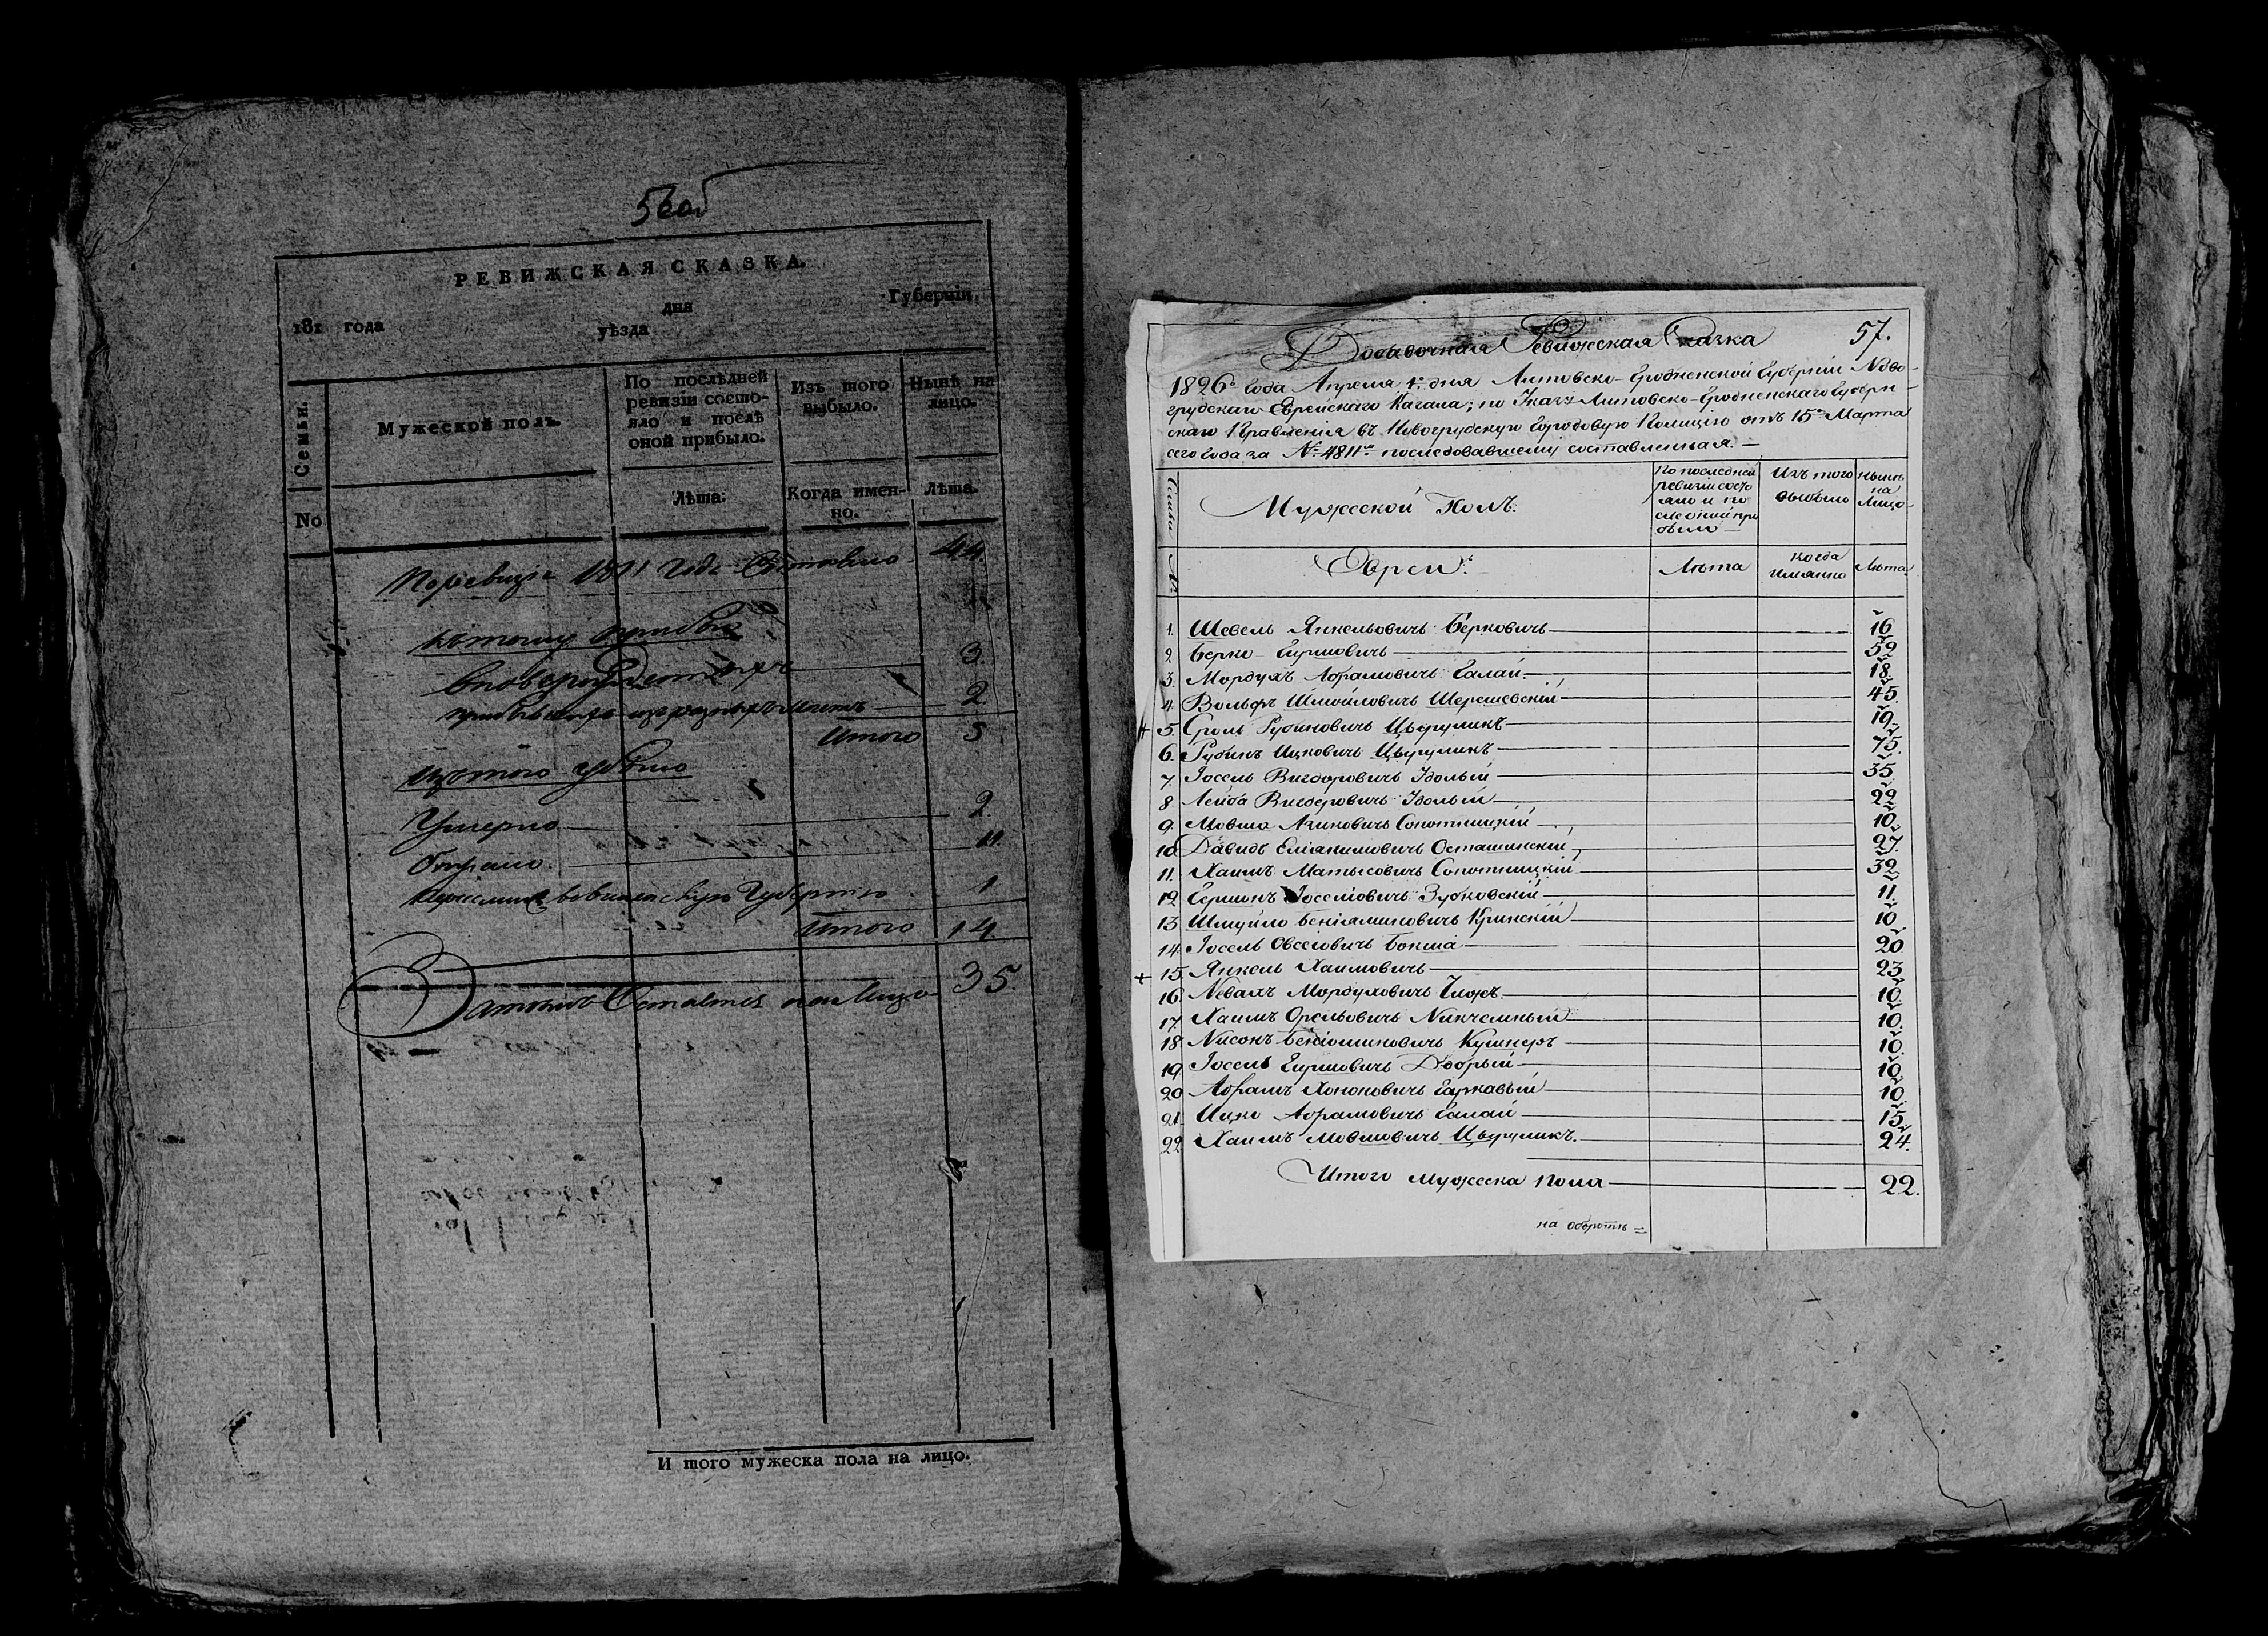 56об
РЕВИЖСКАЯ СКАЗКА.
181 года дня Губерніи,
уѣзда
Семьи.
Мужеской полъ.
По послѣдней ревизіи состояло и послѣ оной прибыло.
Изъ того выбыло.
Нынѣ на лицо.
No
Лѣта.
Когда именно.
Лѣта.
По ревизіи 1811 года Состояло 44.
Къ тому прибыло
3.
2
Итого 5
Изъ того убыло
Умерло 2
11
Губернію 1
Итого 14
Затемъ Осталось на Лицо 35.
И того мужеска пола на лицо.
57.
Добавочная Ревижская Сказка
1826го Года Апреля 1го дня Литовско-Гродненской Губерніи Ново-
грудскаго Еврейскаго Кагала, по Указу Литовско-Гродненскаго Губерн-
скаго Правленія въ Новогрудскую Городовую Полицію отъ 15го Марта
сего Года за №. 4811м последовавшему составленная. —
Мужеской Полъ.
По последней ревизіи состояло и по сле оной при было
Изъ того выбыло
Нынѣ на Лицо
№
Евреи.
Лѣта
Когда имянно
Лѣта.
1. Шевель Янкельовичъ Берковичъ 16
2. Берко Гиршовичъ 59
3. Мордухъ Абрамовичъ Галай 18
4. Вольфъ Шмойловичъ Шерешевскій 45.
5. Сроль Рубиновичъ Цыруликъ 19.
6. Рубинъ Ицковичъ Цыруликъ 75.
7. Іосель Вигдоровичъ Удолый 35.
8. Лейба Вигдоровичъ Удолый 29
9. Мовша Сопотницкій 10.
10. Давидъ Еліакимовичъ Осташинскій 27.
11. Хаимъ Матысовичъ Сопотницкій 32
12. Гершонъ Іоселіовичъ Зубковскій 11.
13. Шмуйло Беніаминовичъ Кринскій 10
14. Іосель Овсеіовичъ Бокша 20
15. Янкель Хаимовичъ 23
16. Мордуховичъ 10.
17. Хаимъ Орельовичъ Никчемный 10.
18. Нисонъ Беніоминовичъ Кушнеръ 10.
19. Іосель Гиршовичъ Добрый 10.
20. Абрамъ Хононовичъ Гаркавый 10.
21. Ицко Абрамовичъ Галай 15.
22. Хаимъ Мовшовичъ Цыруликъ. 24.
Итого Мужеска Пола 22.
на оборотѣ =